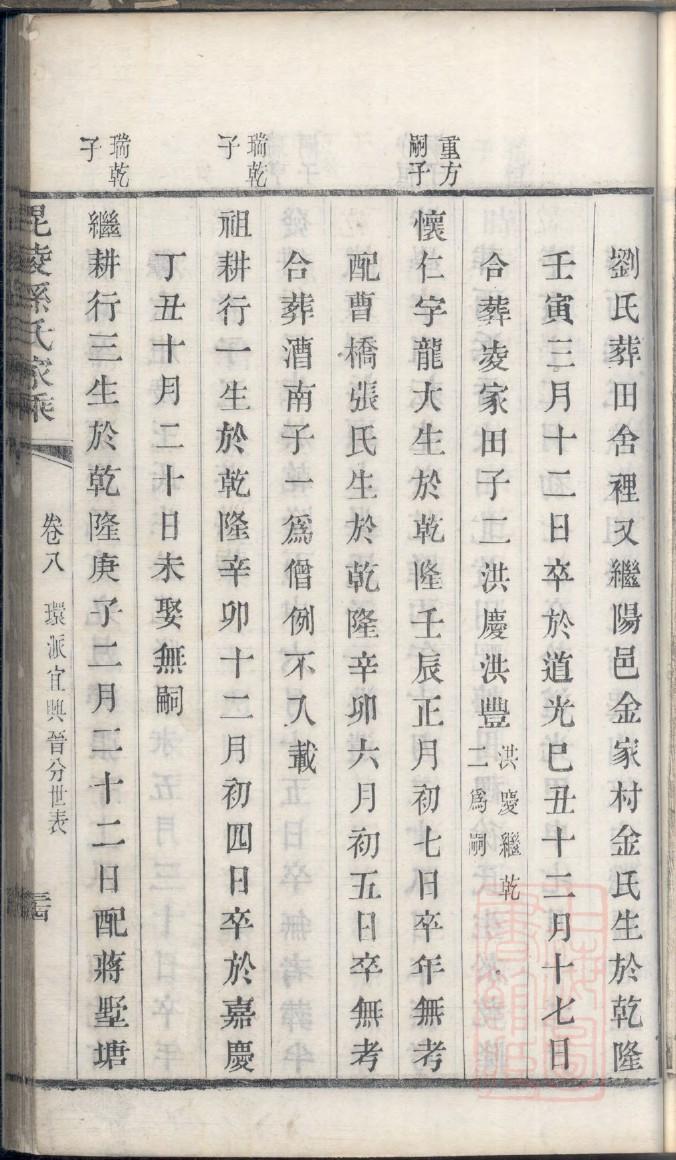 劉氏葬田舍裡又繼陽邑金家村金氏生於乾隆
壬寅三月十二日卒於道光己丑十二月十七日
合葬凌家田子二洪慶洪豐
洪慶繼乾
二爲嗣
重方
嗣子
懷仁字龍大生於乾隆壬辰正月初七日卒年無考
配曹橋張氏生於乾隆辛卯六月初五日卒無考
合葬漕南子一爲僧例不入載
瑞乾
子
祖耕行一生於乾隆辛卯十二月初四日卒於嘉慶
丁丑十月二十日未娶無嗣
瑞乾
子
繼耕行三生於乾隆庚子二月二十二日配蔣墅塘
毘凌孫氏家乘
卷八
環派宜興晉分世表